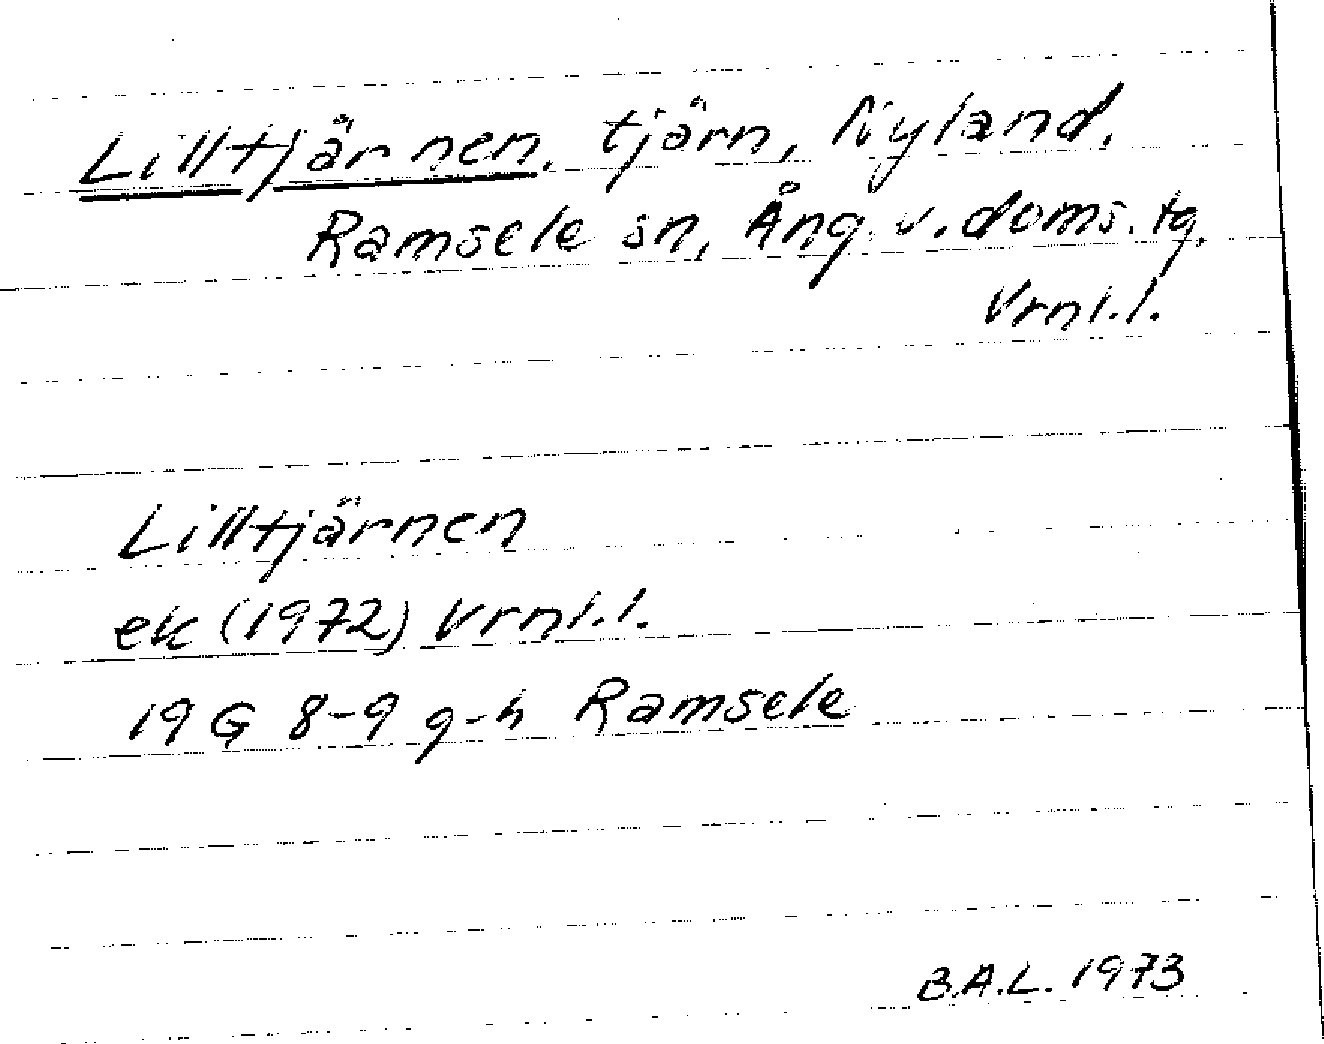 Lilltjärnen. tjärn, Nyland,
Ramsele sn, Ång. v. doms. tg.
Vrnl.l.
Lilltjärnen
ek (1972) Vrnl.l.
19 G 8-9 g-h Ramsele
B.A.L. 1973